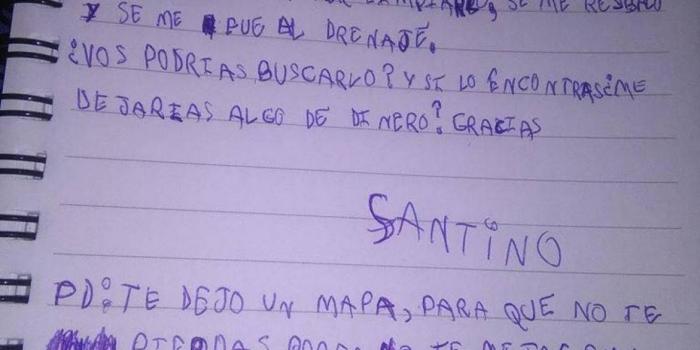 SE ME RESBALO
Y SE ME FUE AL DRENAJE.
¿VOS PODRIAS BUSCARLO? Y SI LO ENCONTRAS ¿ME
DEJARIAS ALGO DE DINERO? GRACIAS
SANTINO
PD: TE DEJO UN MAPA, PARA QUE NO TE